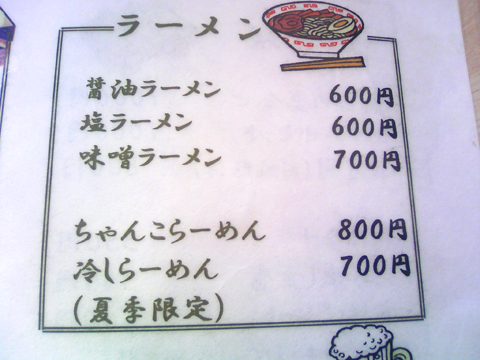 ラーメン
醤油ラーメン 600円
塩ラーメン 600円
味噌ラーメン 700円
ちゃんこらーめん 800円
冷しらーめん 700円
(夏季限定)